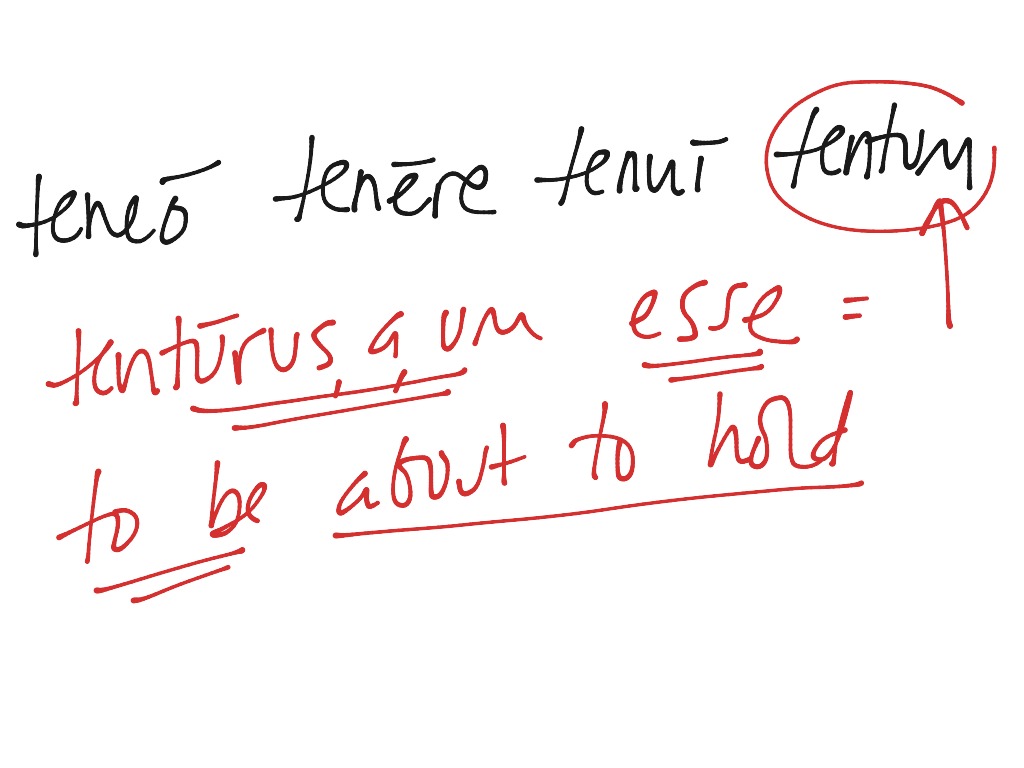 teneō tenēre tenuī tentum
tentūrus, a, um esse =
to be about to hold